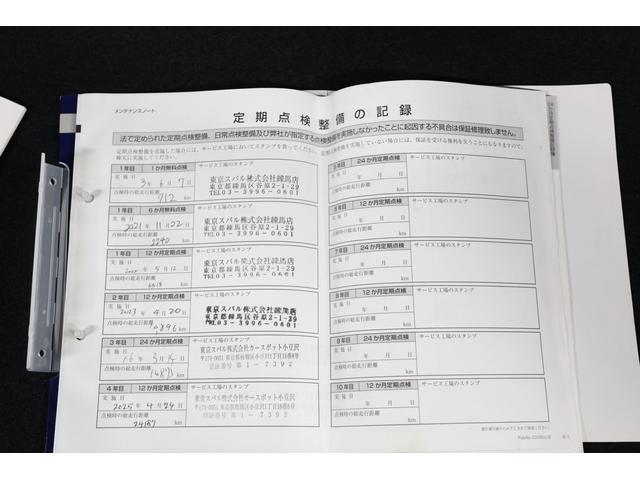 メンテナンスノート
定期点検整備の記録
法で定められた定期点検整備、日常点検整備及び弊社が指定する点検整備を実施しなかったことに起因する不具合は保証修理致しません。
定期点検整備を実施した場合には、サービス工場においてスタンプを貰ってください。
確実に実施してください。
1年目 1か月無料点検 サービス工場のスタンプ
実施日 3年 6月 7日
点検時の総走行距離
712 km
東京スバル株式会社練馬店
東京都練馬区谷原2-1-29
TEL03-3996-0601
1年目 6か月無料点検 サービス工場のスタンプ
実施日
2021年 11月 22日
点検時の総走行距離
2240 km
東京スバル株式会社練馬店
東京都練馬区谷原2-1-29
TEL03-3996-0601
1年目 12か月定期点検 サービス工場のスタンプ
実施日
年 5月 12日
点検時の総走行距離
km
東京スバル株式会社練馬店
東京都練馬区谷原2-1-29
TEL03-3996-0601
2年目 12か月定期点検 サービス工場のスタンプ
実施日
2023年 4月 20日
点検時の総走行距離
km
東京スバル株式会社練馬店
東京都練馬区谷原2-1-29
TEL03-3996-0601
3年目 24か月定期点検 サービス工場のスタンプ
実施日
年 3月 日
点検時の総走行距離
km
東京スバル株式会社カースポット小豆沢
〒174-0051 東京都板橋区小豆沢1丁目16番8号
認証番号 第1-7392
4年目 12か月定期点検 サービス工場のスタンプ
実施日
2025年 4月 24日
点検時の総走行距離
24187 km
東京スバル株式会社カースポット小豆沢
〒174-0051 東京都板橋区小豆沢1丁目16番8号
認証番号 第1-7392
5年目 24か月定期点検 サービス工場のスタンプ
実施日
年 月 日
点検時の総走行距離
km
12か月定期点検 サービス工場のスタンプ
実施日
年 月 日
点検時の総走行距離
km
7年目 24か月定期点検 サービス工場のスタンプ
実施日
年 月 日
点検時の総走行距離
km
8年目 12か月定期点検 サービス工場のスタンプ
実施日
年 月 日
点検時の総走行距離
km
9年目 24か月定期点検 サービス工場のスタンプ
実施日
年 月 日
点検時の総走行距離
km
10年目 12か月定期点検 サービス工場のスタンプ
実施日
年 月 日
点検時の総走行距離
km